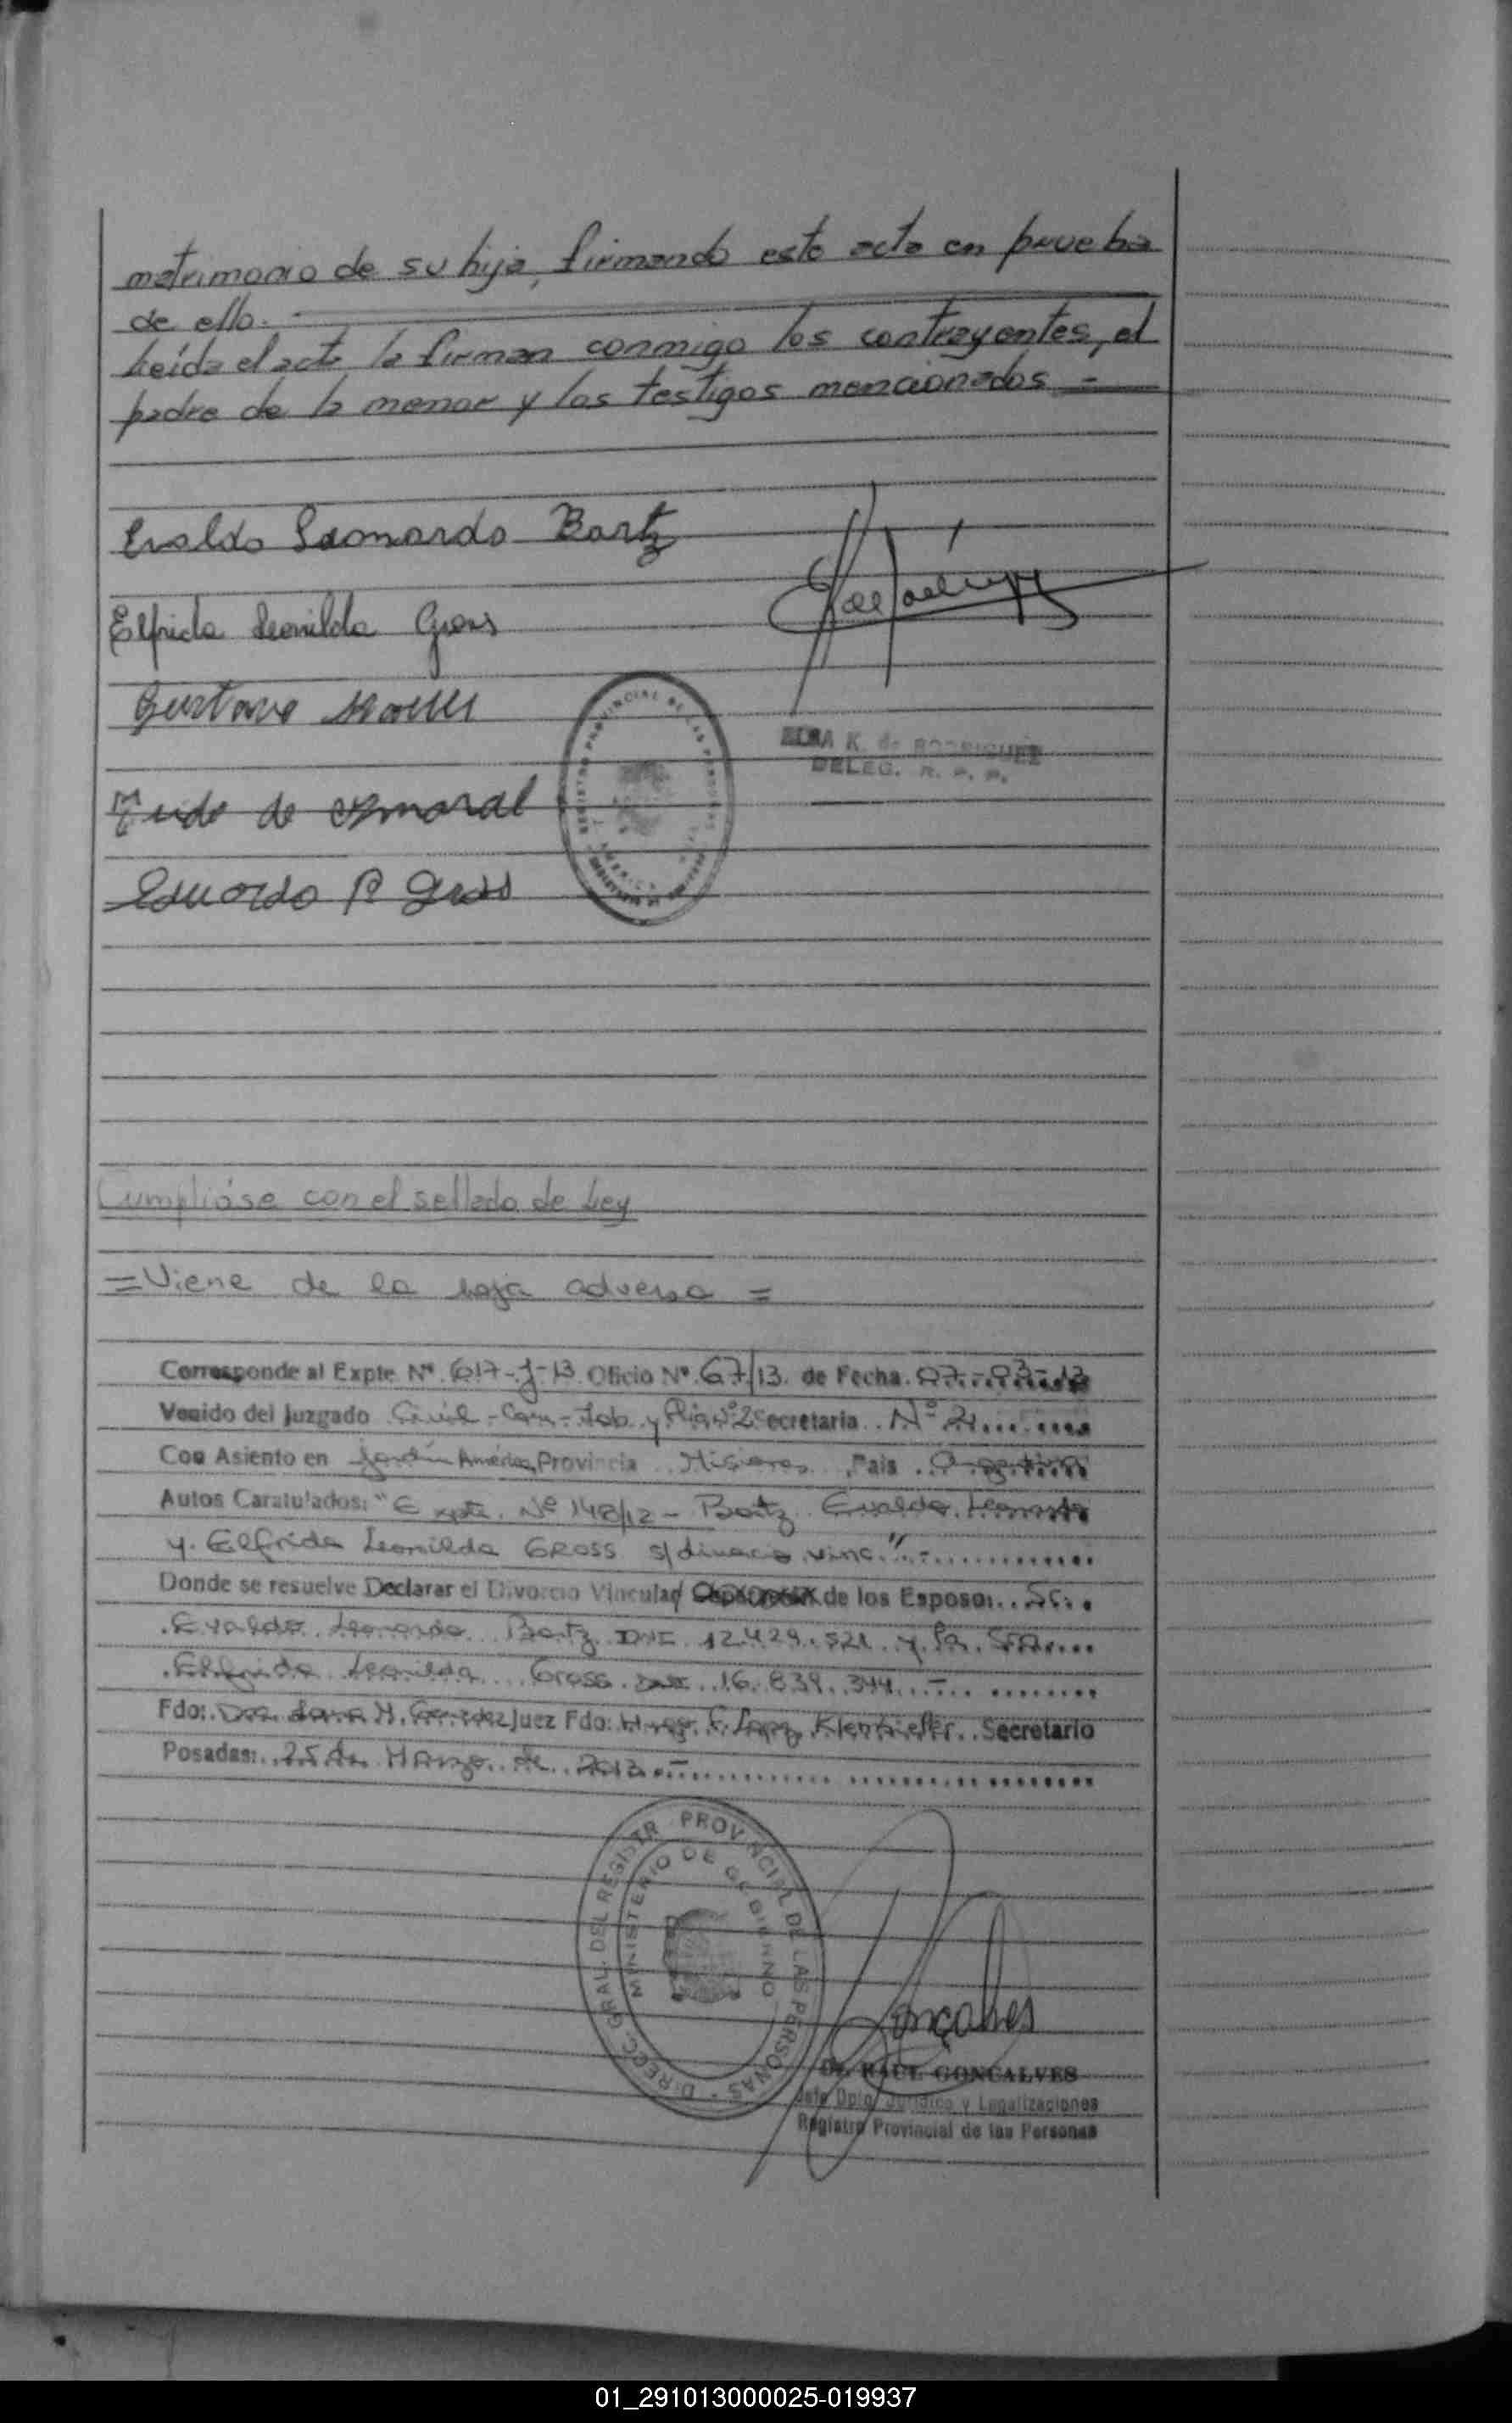 matrimonio de su hija, firmando este acto en prueba
de ello.
Leída el acta la firman conmigo los contrayentes, el
padre de la menor y los testigos mencionados -
Evaldo Leonardo Bartz
Elfrida Leonilda Gross
Gustavo
de Amaral
Eduardo R Gross
REGISTRO PROVINCIAL DE LAS PERSONAS
ELBA K. de RODRIGUEZ
DELEG. R. P. P.
Cumplióse con el sellado de Ley
= Viene de la hoja adversa =
Corresponde al Expte Nº 617-J-13 Oficio Nº 67/13 de Fecha 07-03-13
Venido del Juzgado Civil - Com - Lab. y Flia Nº 2 Secretaria Nº 2
Con Asiento en Jardín América Provincia Misiones Pais Argentina
Autos Caratulados: "Expte. Nº 148/12 - Bartz Evaldo Leonardo
y Elfrida Leonilda GROSS s/divorcio vinc."
Donde se resuelve Declarar el Divorcio Vincular de los Esposos Sr.
Evaldo Leonardo Bartz DNI 12.429.521 y la Sra.
Elfrida Leonilda Gross DNI 16.839.344 -
Fdo: Dra. M. Juez Fdo: Hugo Secretario
Posadas: 25 de Marzo de 2013 -
DIRECC. GRAL. DEL REGISTR PROVINCIAL DE LAS PERSONAS
MINISTERIO DE GOBIERNO
Gonçalves
Dr. RAUL GONCALVES
Jefe Dpto. Jurídico y Legalizaciones
Registro Provincial de las Personas
01_291013000025-019937